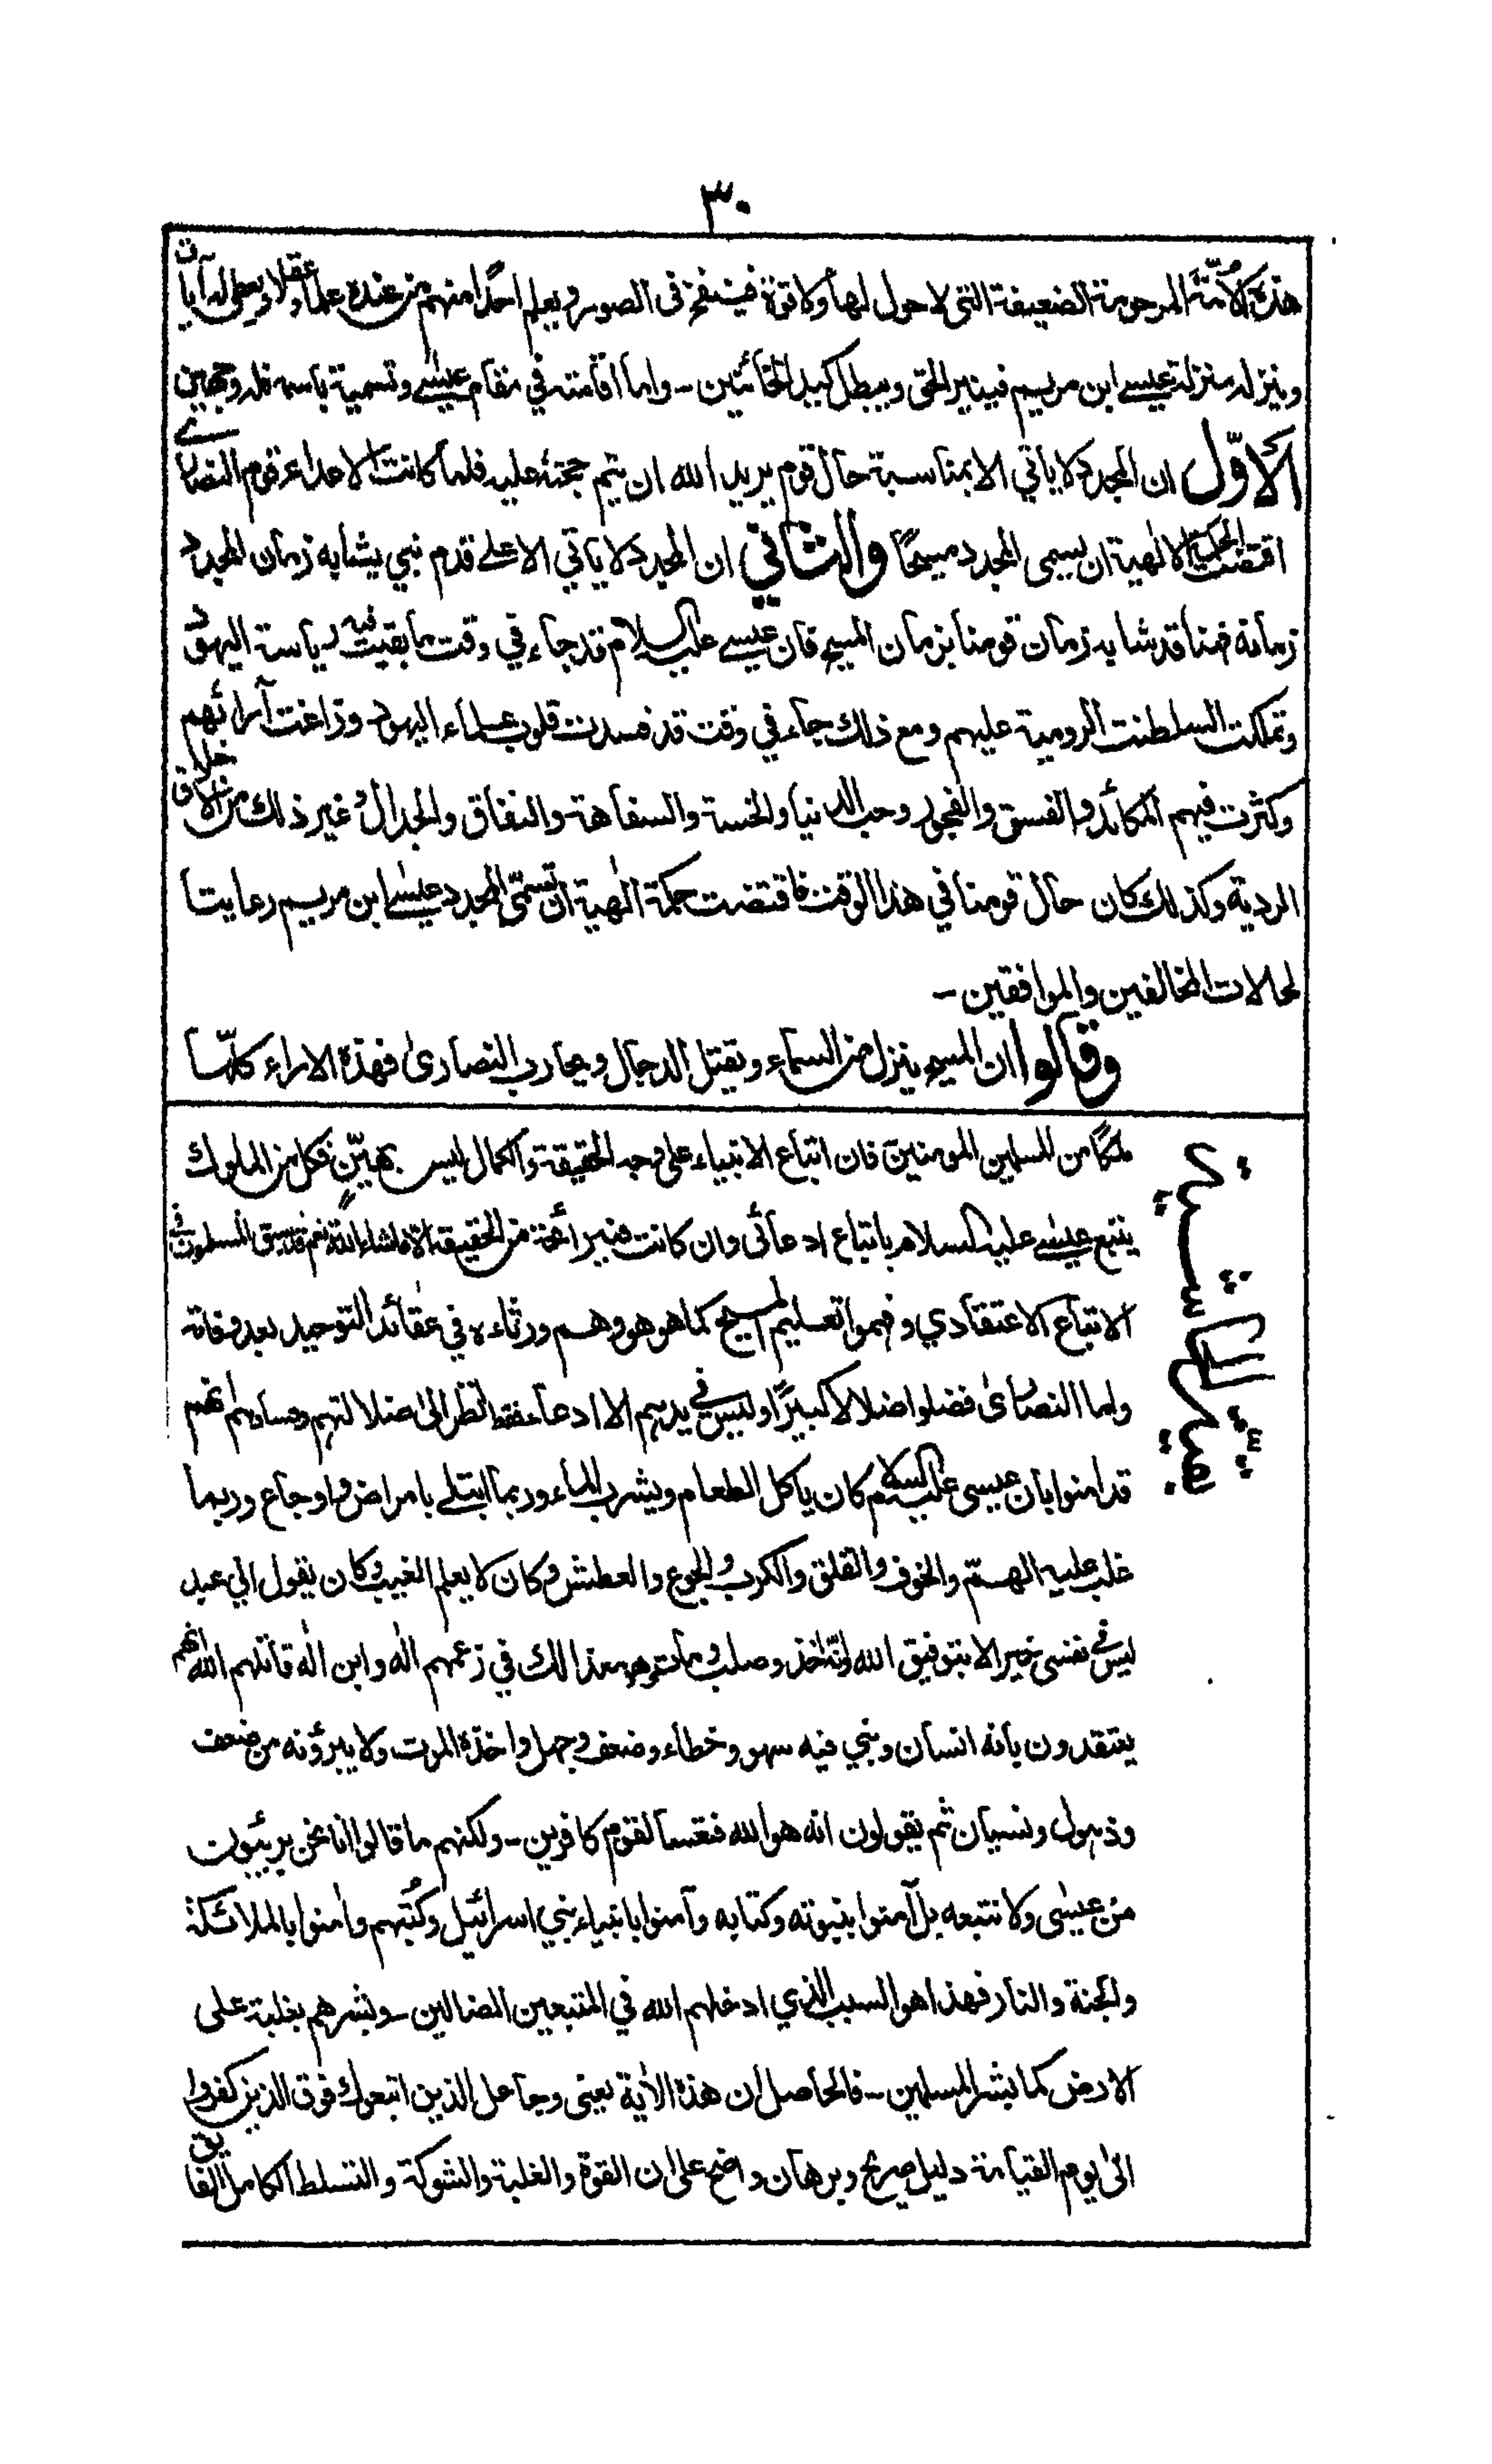 ٣٠
هذه الأمّة المرحومة الضعيفة التى لا حول لها ولا قوة فينفخ فى الصور ويعلم احدًا منهم من عنده علما وعقلا ويعطى له آيات
وينزله منزلة عيسى ابن مريم فينير الحق ويبطل كيد الخائنين ۔ واما اقامته في مقام عيسى وتسمية باسمه فله وجهين
الاوّل ان المجدد لا ياتي الا بمناسبة حال قوم يريد الله ان يتم حجته عليه فلما كانت الاعداء قوم النصارى
اقتضت الحكمة الالهية ان يسمى المجدد مسيحًا والثاني ان المجدد لا ياتي الا على قدم نبي يشابه زمان المجدد
زمانه فهنا قد شابه زمان قومنا بزمان المسيح فان عيسى عليه السلام قد جاء في وقت ما بقيت فيه رياسة اليهود
وتملكت السلطنت الرومية عليهم ومع ذلك جاء في وقت قد فسدت قلوب علماء اليهود وزاغت آرائهم
وكثرت فيهم المكائد والفسق والفجور وحب الدنيا والخسة والسفاهة والنفاق والجدال وغير ذلك من الاخلاق
الردية وكذلك كان حال قومنا في هذا الوقت فاقتضت حكمة الٰهية ان تسمّى المجدد عيسى ابن مريم رعايتا
لحالات المخالفين والموافقين ۔
وقالوا ان المسيح ينزل من السماء ويقتل الدجال ويحارب النصارىٰ فهذه الاراء كلّها
ملكًا من المسلمين المومنين فان اتباع الانبياء على وجه الحقيقة والكمال ليس بهيّن فكل من الملوك
يتبع عيسى عليه السلام باتباع ادعائى وان كانت فيه رائحة من الحقيقة الا ما شاء الله نعم قد سبق المسلمون في
الاتباع الاعتقادي وفهموا تعليم المسيح كما هو هو وهم ورثاءه في عقائد التوحيد بعد وفاته
واما النصارىٰ فضلوا ضلالا كبيرًا وليس في يديهم الا ادعاء فقط انظر الىٰ ضلالتهم وفسادهم انهم
قد امنوا بان عيسى عليه السلام كان ياكل الطعام ويشرب الماء وربما ابتلي بامراض واوجاع وربما
غلب عليه الهمّ والخوف والقلق والكرب والجوع والعطش وكان لا يعلم الغيب وكان يقول اني عبد
ليس في نفسى خير الا بتوفيق الله وانّه اخذ وصلب ومات وهو مع ذالك في زعمهم الٰه وابن الٰه قاتلهم الله انهم
يعتقدون بانه انسان ونبي فيه سهو وخطاء وضعف وجهل واخذه الموت ولا يبرؤنه من ضعف
وذهول ونسيان ثم يقولون انه هو الله فتعسا لقوم كافرين ۔ ولكنهم ما قالوا انا نحن بريئون
من عيسىٰ ولا نتبعه بل آمنوا بنبوته وكتابه وآمنوا بانبياء بني اسرائيل وكُتبهم وامنوا بالملائكة
والجنة والنار فهذا هو السبب الذي ادخلهم الله في المتبعين الضالين ۔ وبشرهم بغلبة على
الارض كما بشر المسلمين ۔ فالحاصل ان هذه الأية يعنى وجاعل الذين اتبعوك فوق الذين كفروا
الىٰ يوم القيامة دليل صريح وبرهان واضح على ان القوة والغلبة والشوكة والتسلط الكامل الفائق